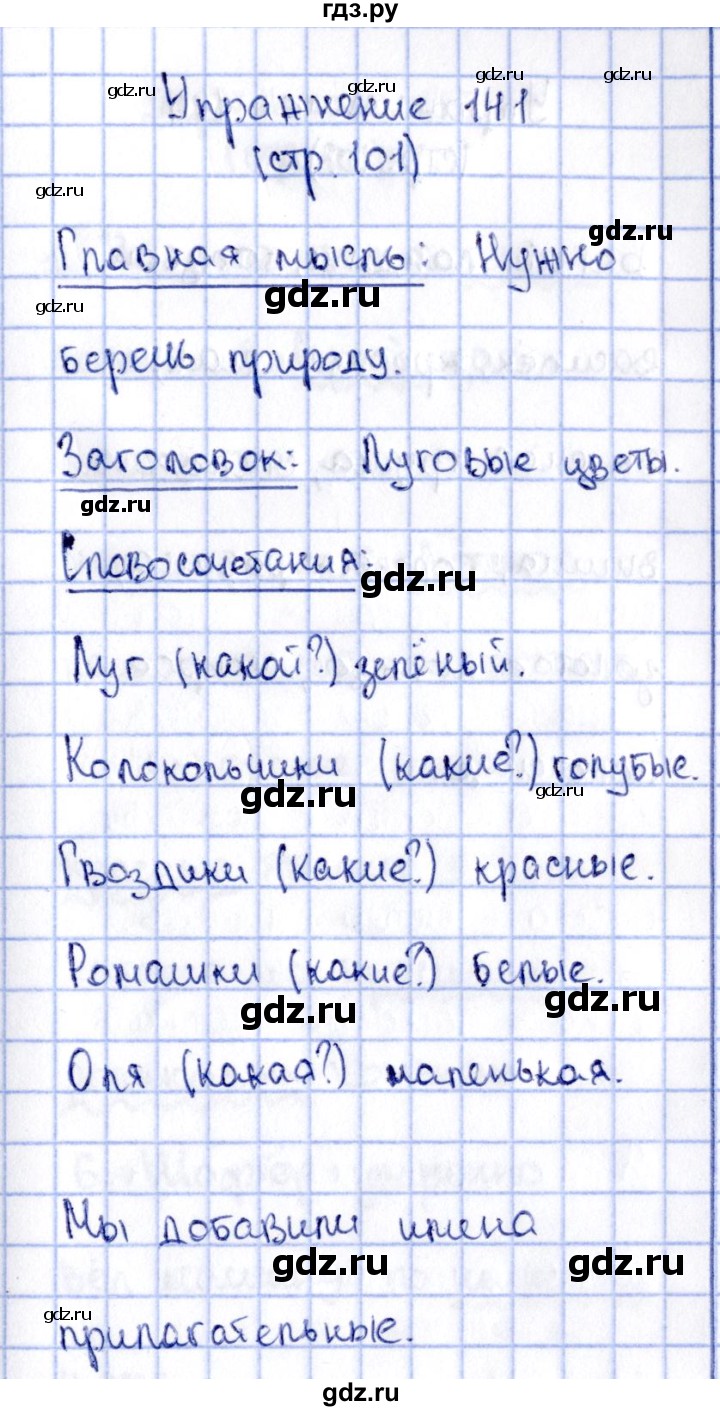 гдз.ру
gdz.ru gdz.ru gdz.ru
Упражнение 141
(стр. 101)
gdz.ru
gdz.ru
Главная мысль: Нужно
gdz.ru
gdz.ru
беречь природу.
Заголовок: Луговые цветы.
gdz.ru
Словосочетания:
gdz.ru
Луг (какой?) зелёный.
Колокольчики (какие?) голубые.
gdz.ru gdz.ru
Гвоздики (какие?) красные.
Ромашки (какие?) белые.
gdz.ru gdz.ru
Оля (какая?) маленькая.
Мы добавили имена
gdz.ru gdz.ru
gdz.ru
прилагательные.
gdz.ru